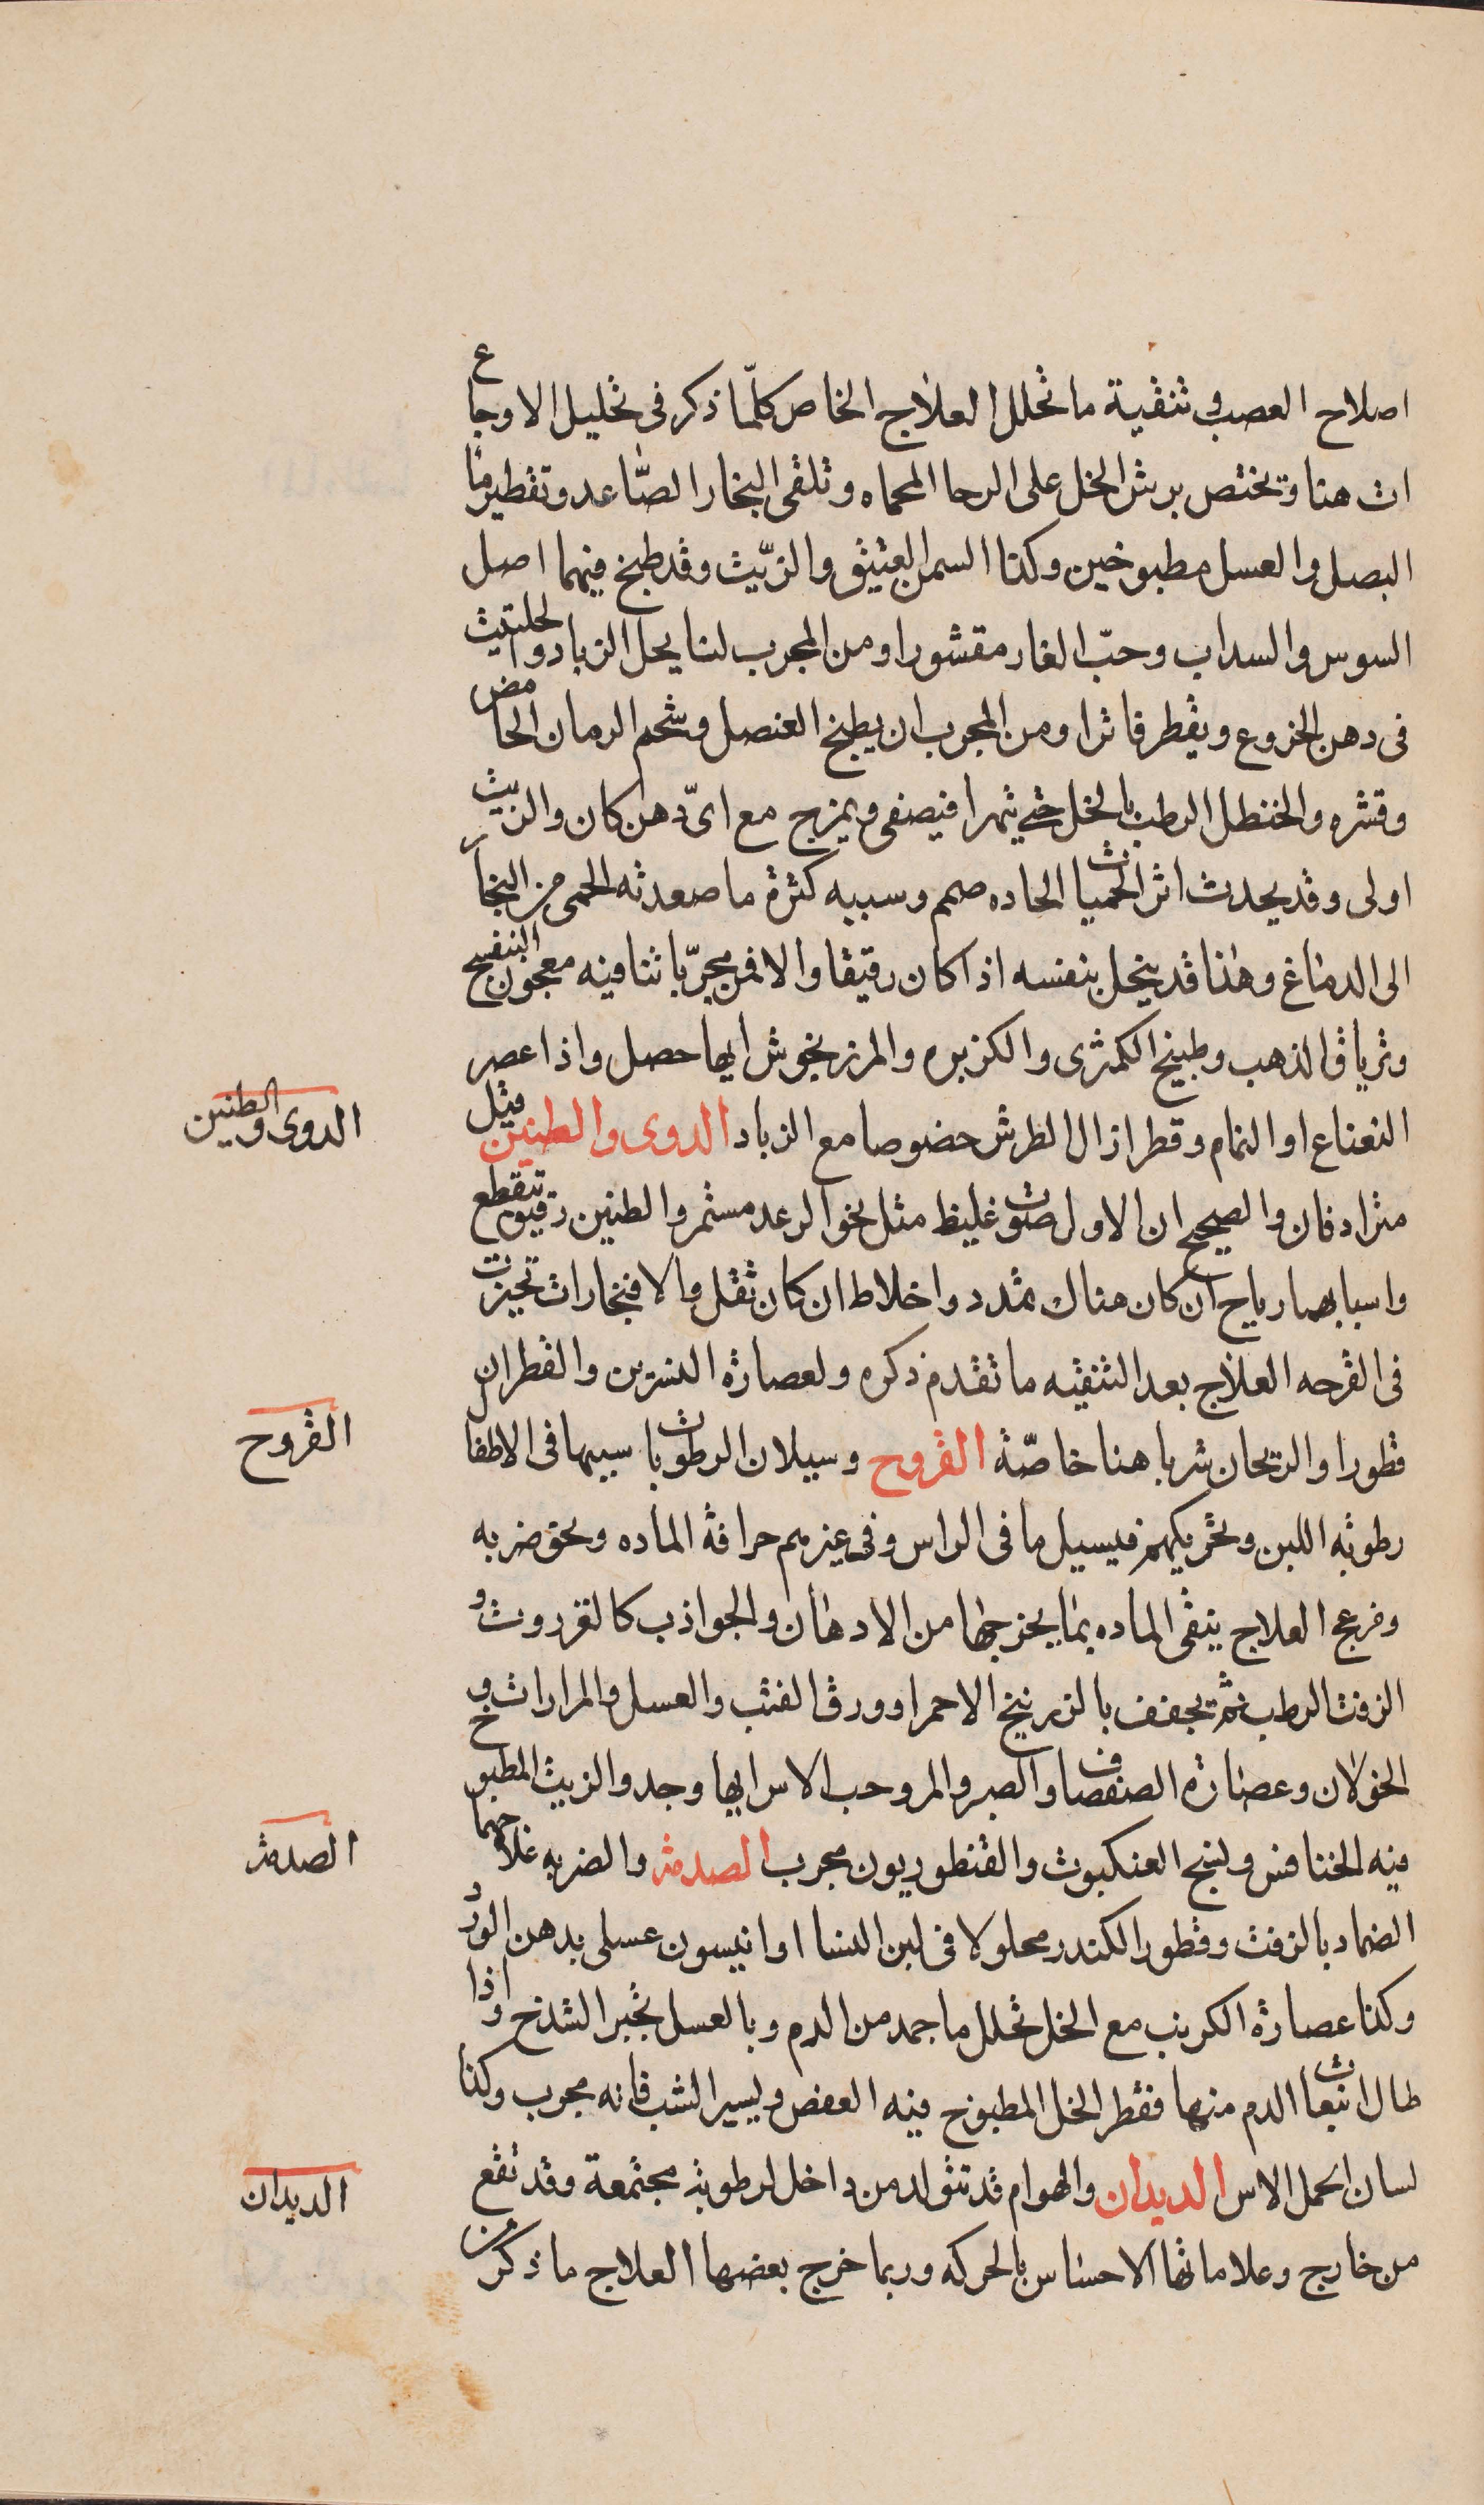 اصلاح العصب في تنقية ما تحلل العلاج الخاص كلّما ذكر في تحليل الاوجاع
ات هنا ويختص برش الخل على الرحا المحماه وتلقى البخار الصاعد وتقطير ما
البصل والعسل مطبوخين وكذا السمن العتيق والزيت وقد طبخ فيهما اصل
السوس والسداب وحبّ الغار مقشورا ومن المجرب لنا يحل الزباد والحلتيت
في دهن الخروع ويقطر فاترا ومن المجرب ان يطبخ العنصل وشحم الرمان الحامض
وقشره والحنظل الرطب بالخل حتى يتهرا فيصفى ويمزج مع اىّ دهن كان والزيت
اولى وقد يحدث اثر الحميات الحاده صمم وسببه كثرة ما صعدته الحمى من البخار
الى الدماغ وهذا قد ينحل بنفسه اذا كان رقيقا والا فمن مجرّباتنا فيه معجون البنفسج
وترياق الذهب وطبيخ الكمثرى والكزبره والمرزنجوش ايها حصل واذا عصر
النعناع او النمام وقطر ازال الطرش خصوصا مع الزباد الدوى والطنين قيل
الدوى والطنين
مترادفان والصحيح ان الاول صوت غليظ مثل نحو الرعد مستمر والطنين رقيق يتقطع
واسبابهما رياح ان كان هناك تمدد واخلاط ان كان ثقل والا فبخارات تحيزت
في القرحه العلاج بعد التنقيه ما تقدم ذكره ولعصارة النسرين والقطران
قطورا والريحان شربا هنا خاصّة القروح وسيلان الرطوبات سببها في الاطفا
القروح
رطوبة اللبن وتحريكهم فيسيل ما في الراس وفي غيرهم حرافة الماده ونحو ضربه
وفرعج العلاج ينقى الماده بما يخرجها من الادهان والجواذب كالعزروت و
الزفت الرطب ثم يجفف بالزرنيخ الاحمر او ورق القنب والعسل والمرارات و
الخولان وعصارة الصفصاف والصبر والمر وحب الاس ايها وجد والزيت المطبوخ
فيه الخنافس ونسج العنكبوت والقنطوريون مجرب الصدمة والضربه علاجهما
الصدمة
الضماد بالزفت وقطور الكندر محلولا في لبن النسا او انيسون عسلى بدهن الورد
وكذا عصارة الكرنب مع الخل تحلل ما جمد من الدم وبالعسل تجبر الشدخ واذا
طال انبعاث الدم منها فقطر الخل المطبوخ فيه العفص ويسير الشب فانه مجرب وكذا
لسان الحمل الاس الديدان والهوام قد تتولد من داخل لرطوبة مجتمعة وقد تقع
الديدان
من خارج وعلاماتها الاحساس بالحركه وربما خرج بعضها العلاج ما ذكر من